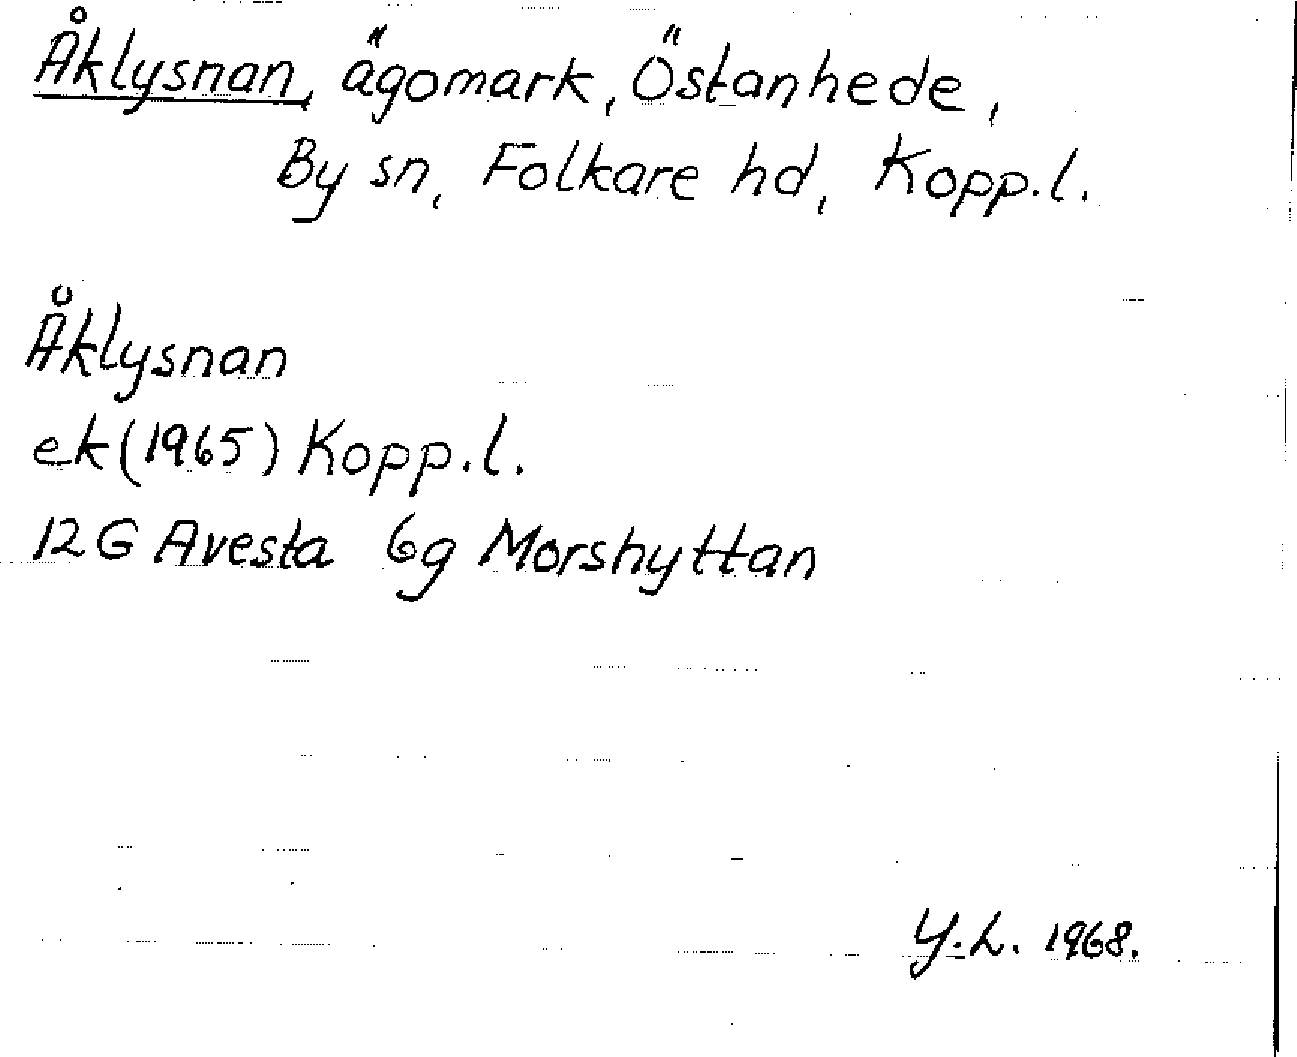 Åklysnan, ägomark, Östanhede,
By sn, Folkare hd, Kopp.l.
Åklysnan
ek (1965) Kopp.l.
12G Avesta 6g Morshyttan
Y.L. 1968.